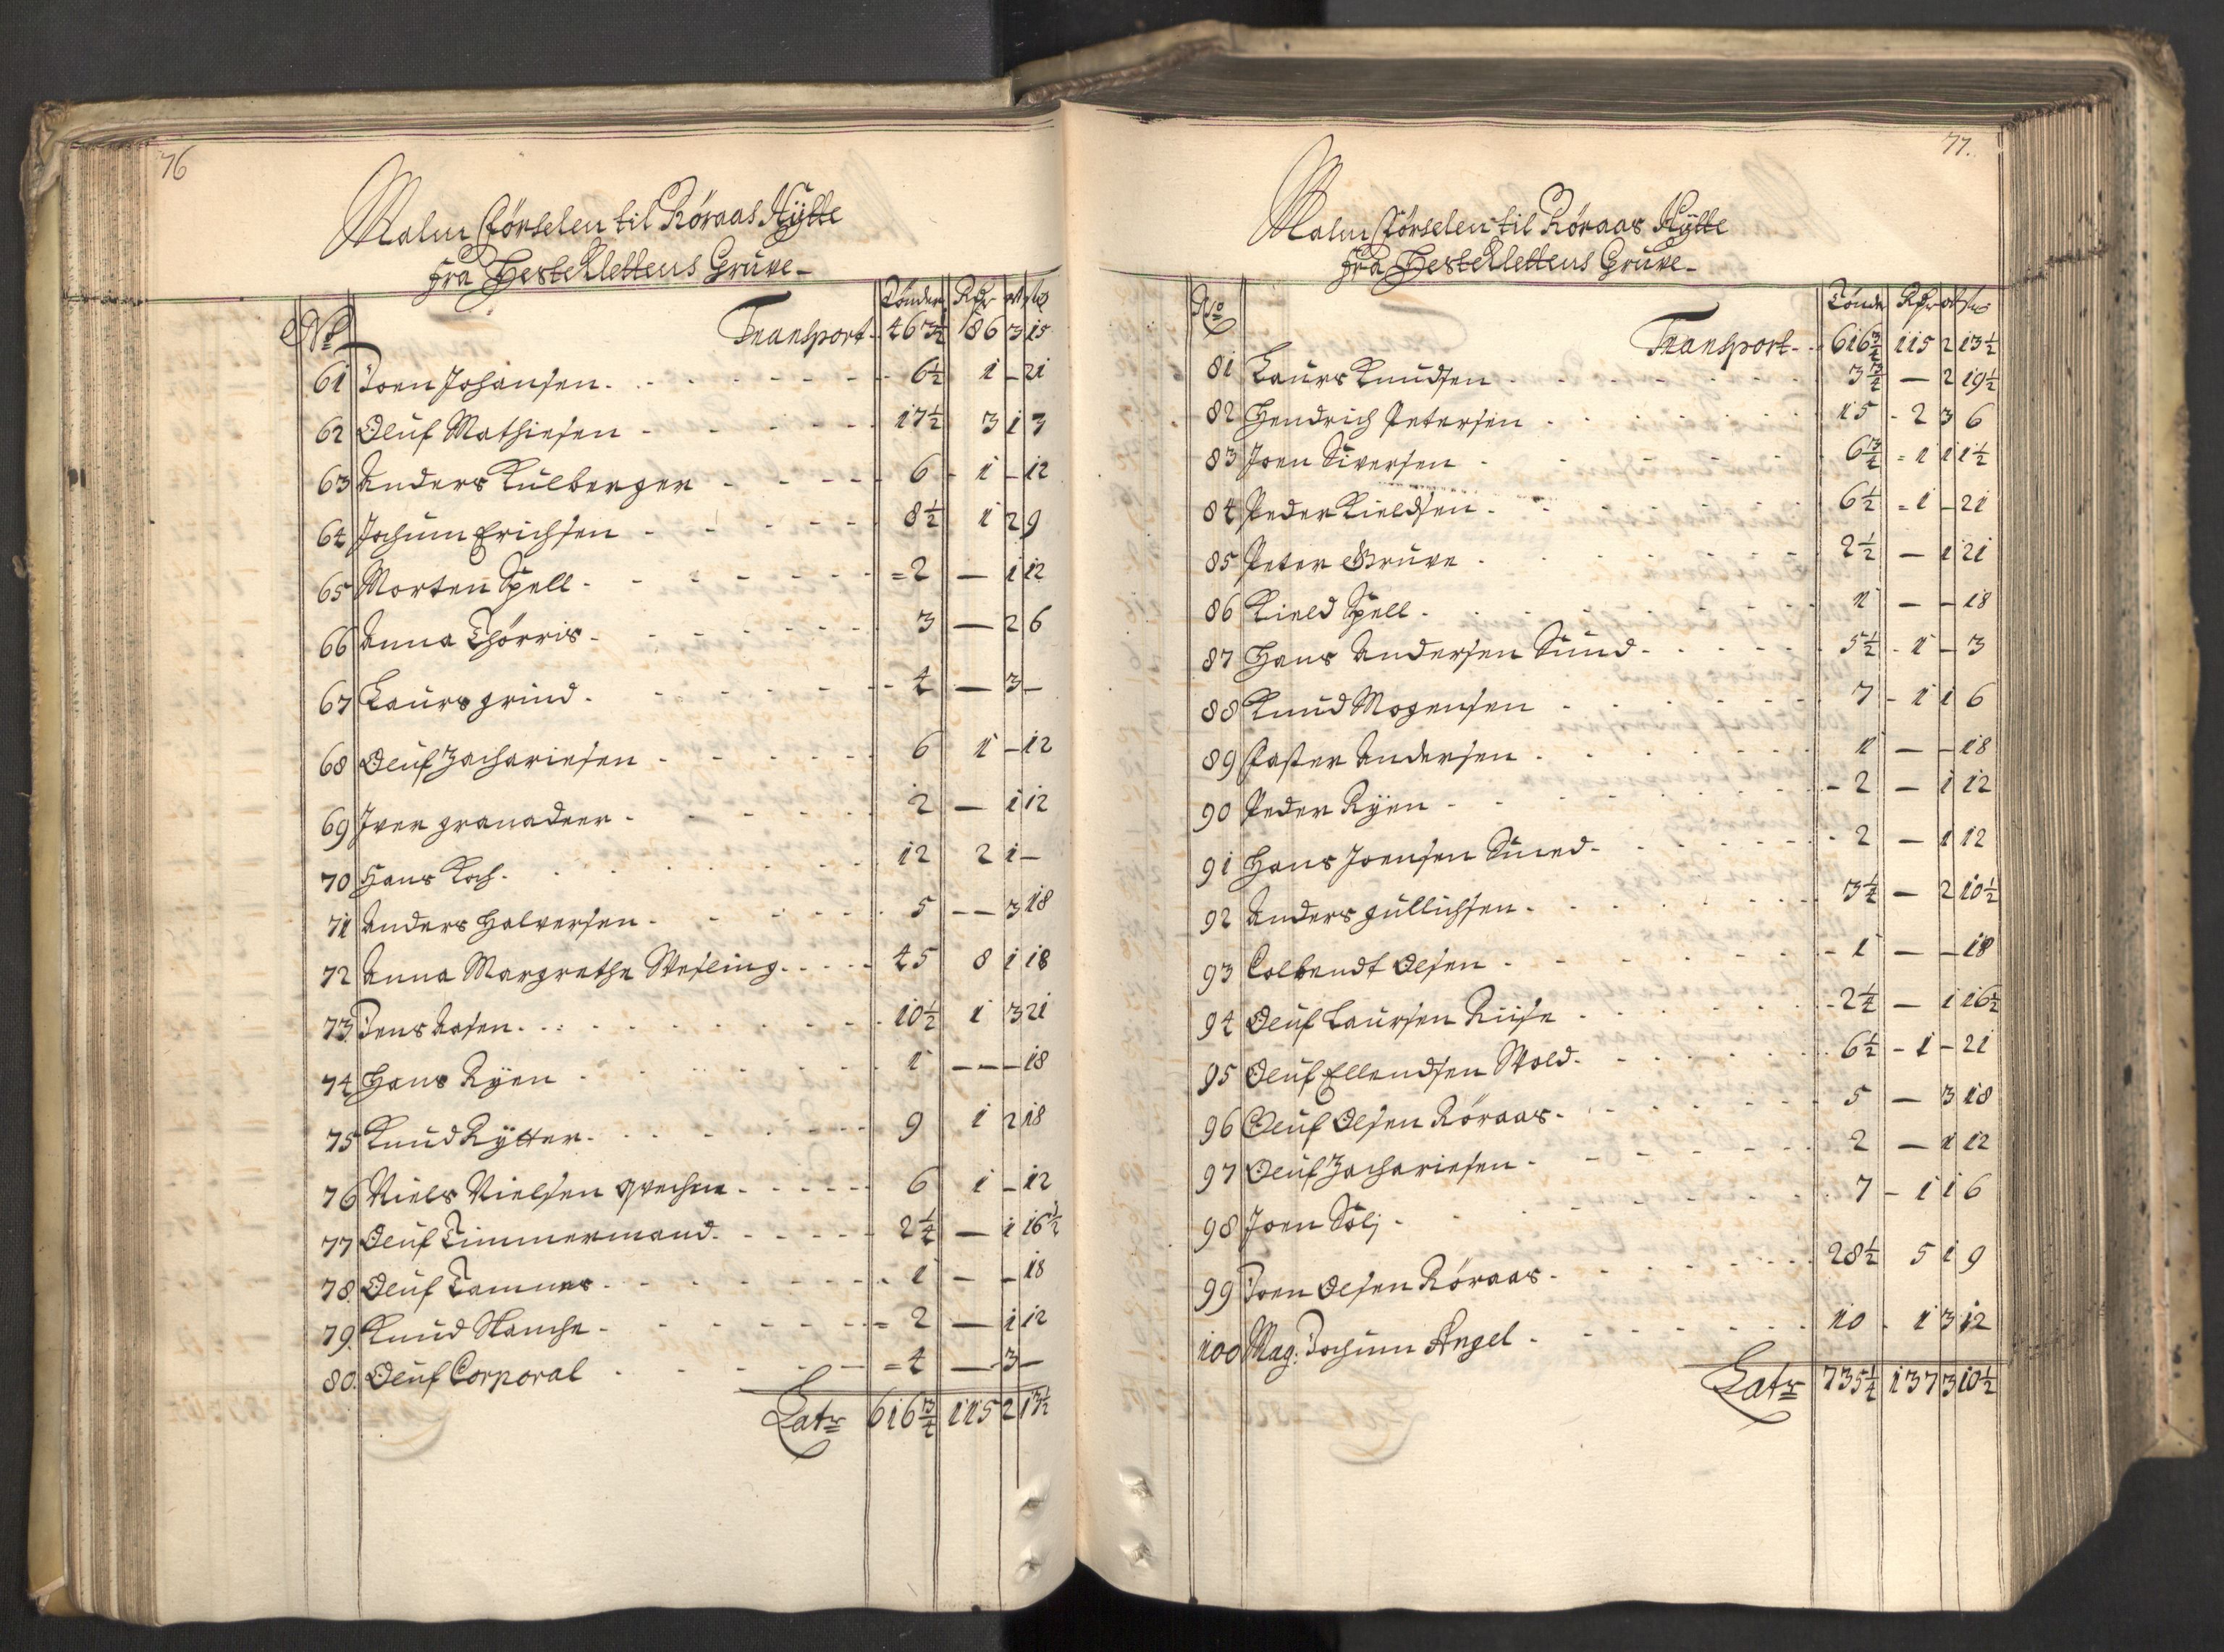 76
Malm Förselen til Röraas Hÿtte
fra Hestekletteus Grüve
No Tönder Rdr ort s
Transport 463½ 86 3 15
61 Joen Johansen 6½ 1 - 21
62 Oluf Mathiesen 17½ 3 1 3
63 Anders Külberger 6 1 - 12
64 Jochum Erichsen 8½ 1 2 9
65 Morten Spell 2 - 1 12
66 Anna Thörris 3 - 2 6
67 Laurs grind 4 - 3 -
68 Oluf Zachariesen 6 1 - 12
69 Iver granadeer 2 - 1 12
70 Hans Koch 12 2 1 -
71 Anders Halversen 5 - 3 18
72 Anna Margrethe Wesling 45 8 1 18
73 Jens Aasen 10½ 1 3 21
74 Hans Rÿen 1 - - 18
75 Knud Rÿtter 9 1 2 18
76 Niels Nielsen 6 1 - 12
77 Oluf Timmermand 2¼ - 1 16½
78 Oluf Tamnes 1 - - 18
79 Knud 2 - 1 12
80 Oluf Corporal 4 - 3 -
Latr 616¾ 115 2 13½
77.
Malm Förselen til Röraas Hÿtte
fra Hestekletteus Grüve
No Tönder Rdr ort s
Transport 616¾ 115 2 13½
81 Laurs Knudsen 3¾ - 2 19½
82 Hendrich Petersen 15 2 3 6
83 Joen Siversen 6¾ 1 1 1½
84 Peder Kieldsen 6½ 1 - 21
85 Peter Grüve 2½ - 1 21
86 Kield Spell 1 - - 18
87 Hans Andersen Sund 5½ 1 - 3
88 Knud Mogensen 7 1 1 6
89 Paster Andersen 1 - - 18
90 Peder Rÿen 2 - 1 12
91 Hans Joensen Smed 2 - 1 12
92 Anders gullichsen 3¼ - 2 10½
93 Colbendt Olsen 1 - - 18
94 Oluf Laursen Riise 2¼ - 1 16½
95 Oluf Ellendsen Wold 6½ 1 - 21
96 Oluf Olsen Röraas 5 - 3 18
97 Oluf Zachariesen 2 - 1 12
98 Joen Solj 7 1 1 6
99 Joen Olsen Röraas 28½ 5 1 9
100 Mag: Jochum Angel 10 1 3 12
Latr 735¼ 137 3 10½